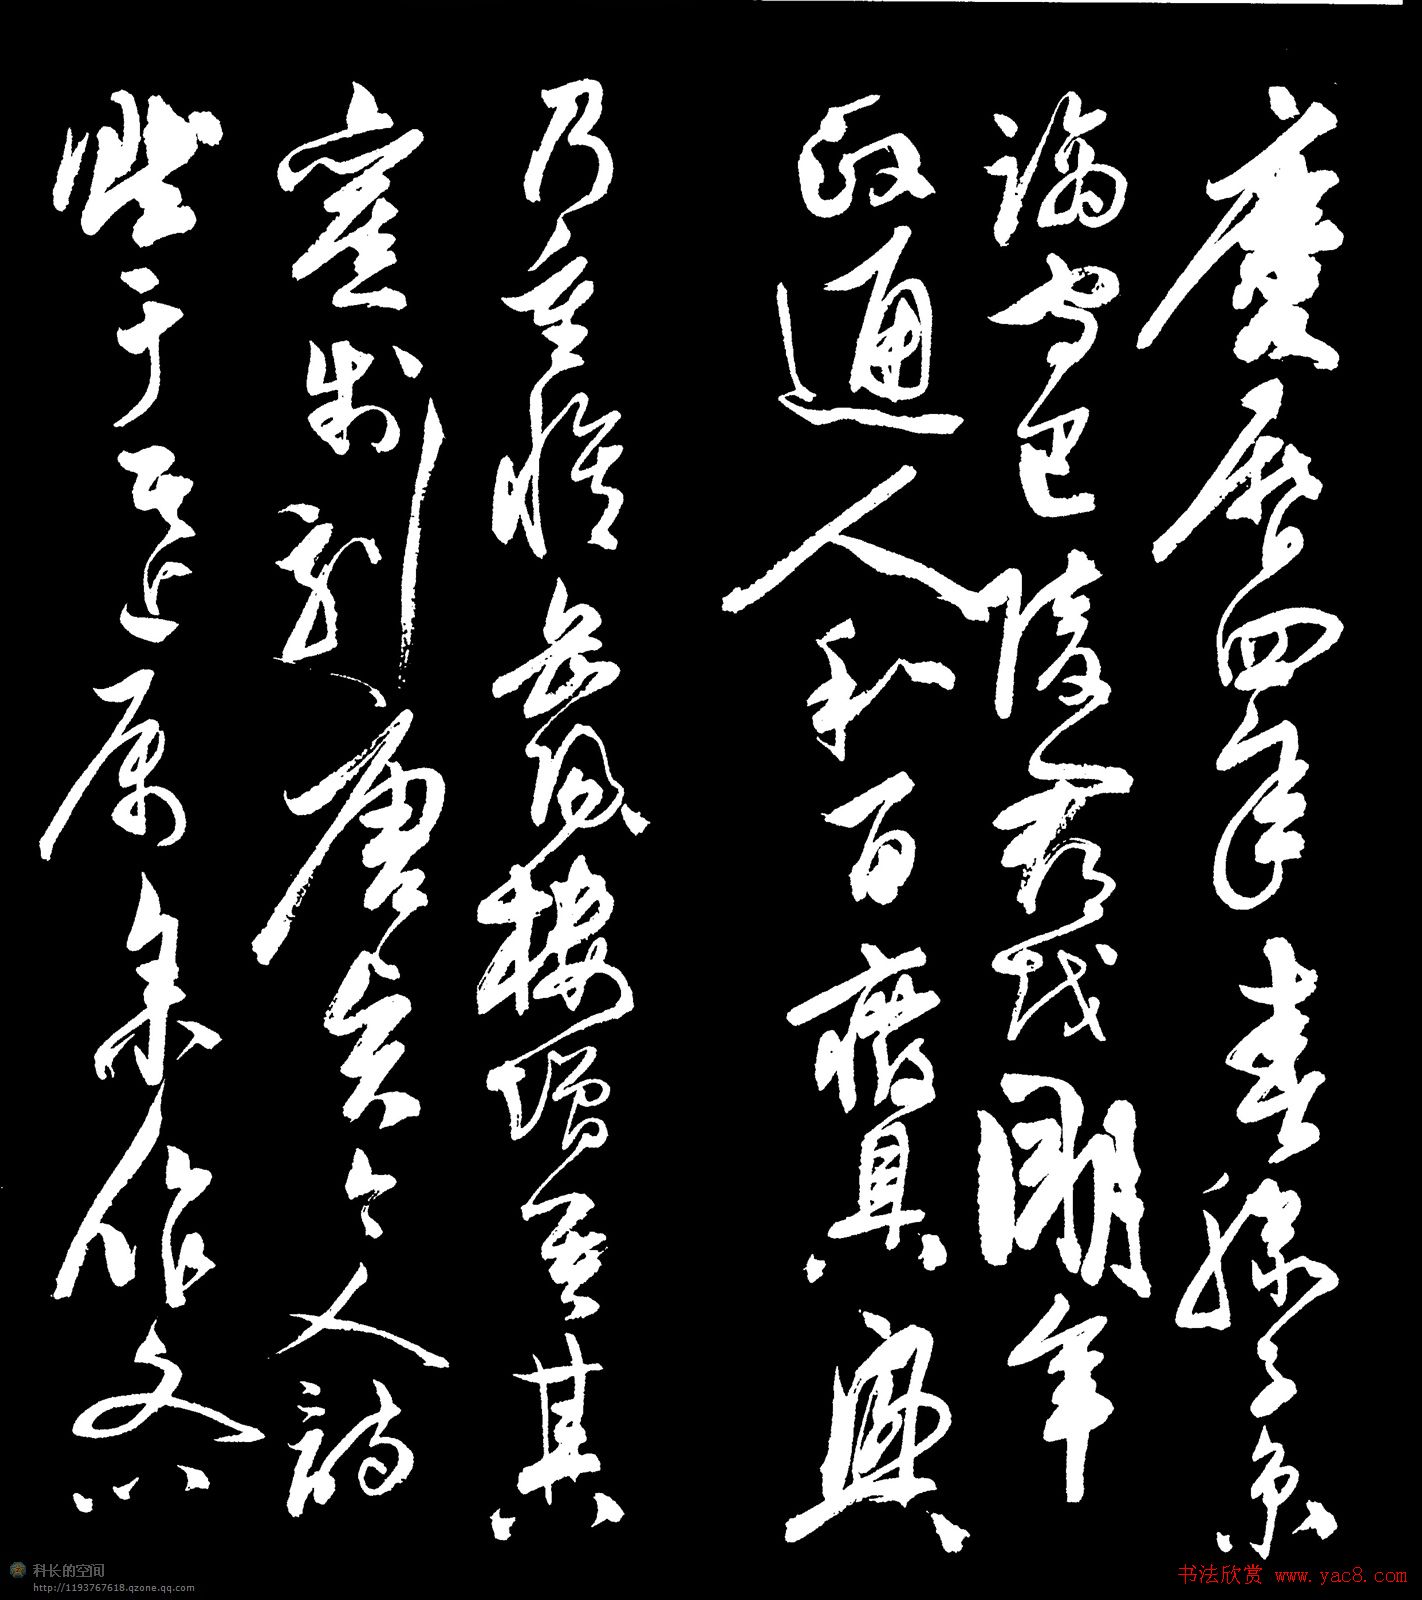 慶曆四年春滕子京
謫守巴陵郡越明年
政通人和百廢具興
乃重脩岳陽樓增其
舊制刻唐賢今人詩
賦于其上屬余作文以
科长的空间
http://1193767618.qzone.qq.com
书法欣赏 www.yac8.com